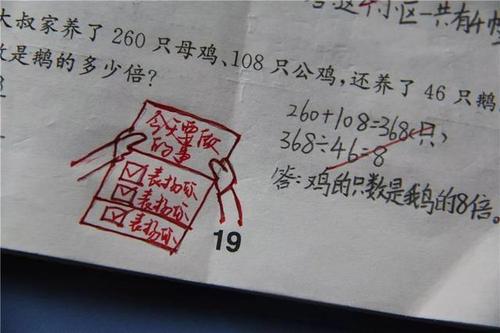 这个小区一共有4
大叔家养了260只母鸡、108只公鸡,还养了46只鹅
数是鹅的多少倍?
260+108=368(只)
368÷46=8
答:鸡的只数是鹅的8倍。
今天要做
的事
☑表扬你
☑表扬你
☑表扬你
19